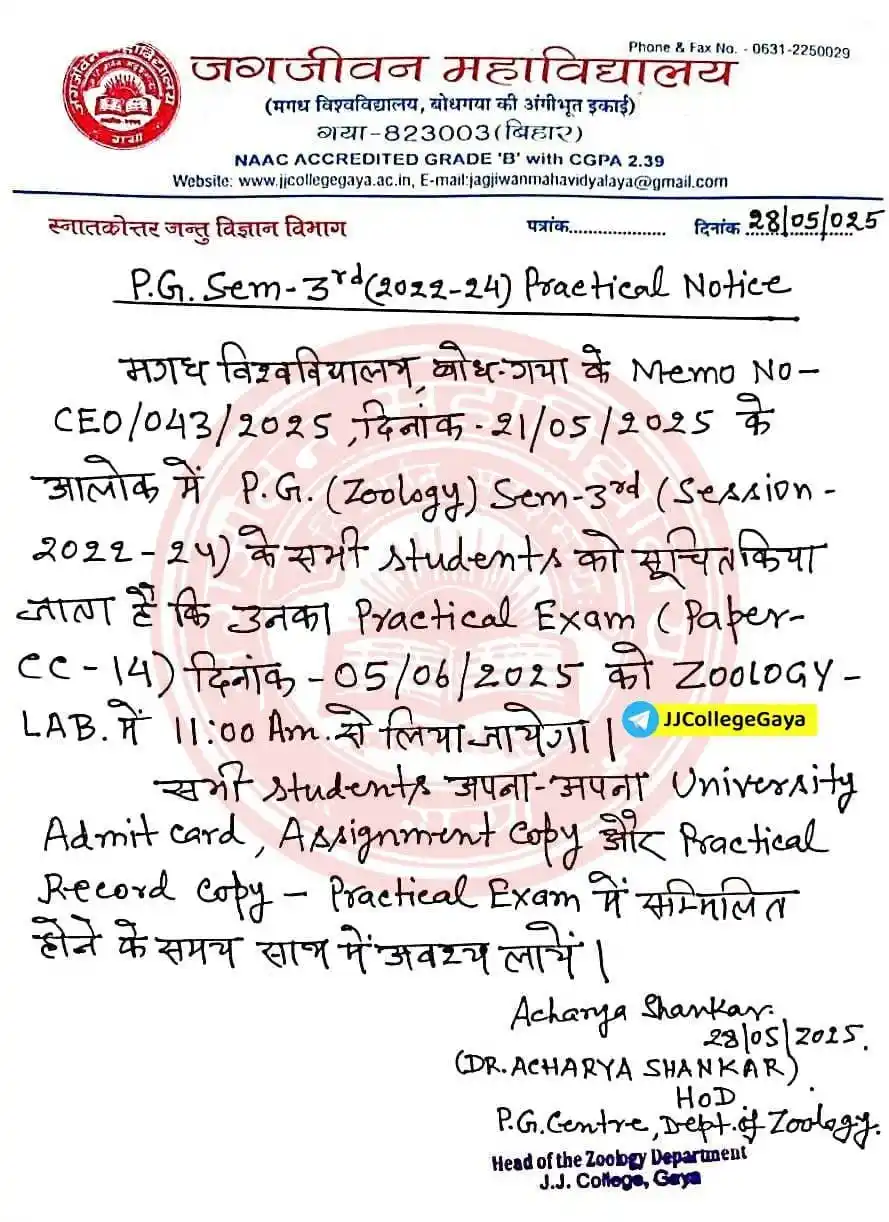 Phone & Fax No. - 0631-2250029
जगजीवन महाविद्यालय
(मगध विश्वविद्यालय, बोधगया की अंगीभूत इकाई)
गया-823003 (बिहार)
NAAC ACCREDITED GRADE 'B' with CGPA 2.39
Website: www.jjcollegegaya.ac.in, E-mail:jagjiwanmahavidyalaya@gmail.com
स्नातकोत्तर जन्तु विज्ञान विभाग पत्रांक..................... दिनांक 28/05/025
P.G. Sem-3rd (2022-24) Practical Notice
मगध विश्वविद्यालय, बोध-गया के Memo No-
CEO/043/2025, दिनांक-21/05/2025 के
आलोक में P.G. (Zoology) Sem-3rd (Session-
2022-24) के सभी students को सूचित किया
जाता है कि उनका Practical Exam (Paper-
CC-14) दिनांक-05/06/2025 को ZOOLOGY-
LAB. में 11:00 Am. से लिया जायेगा।
JJCollegeGaya
सभी students अपना-अपना University
Admit card, Assignment Copy और Practical
Record Copy - Practical Exam में सम्मिलित
होने के समय साथ में अवश्य लायें।
Acharya Shankar.
28/05/2025.
(DR. ACHARYA SHANKAR)
HOD.
P.G. Centre, Dept. of Zoology.
Head of the Zoology Department
J.J. College, Gaya